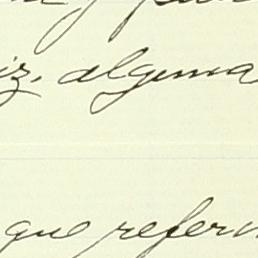 iz. alguma
que refer